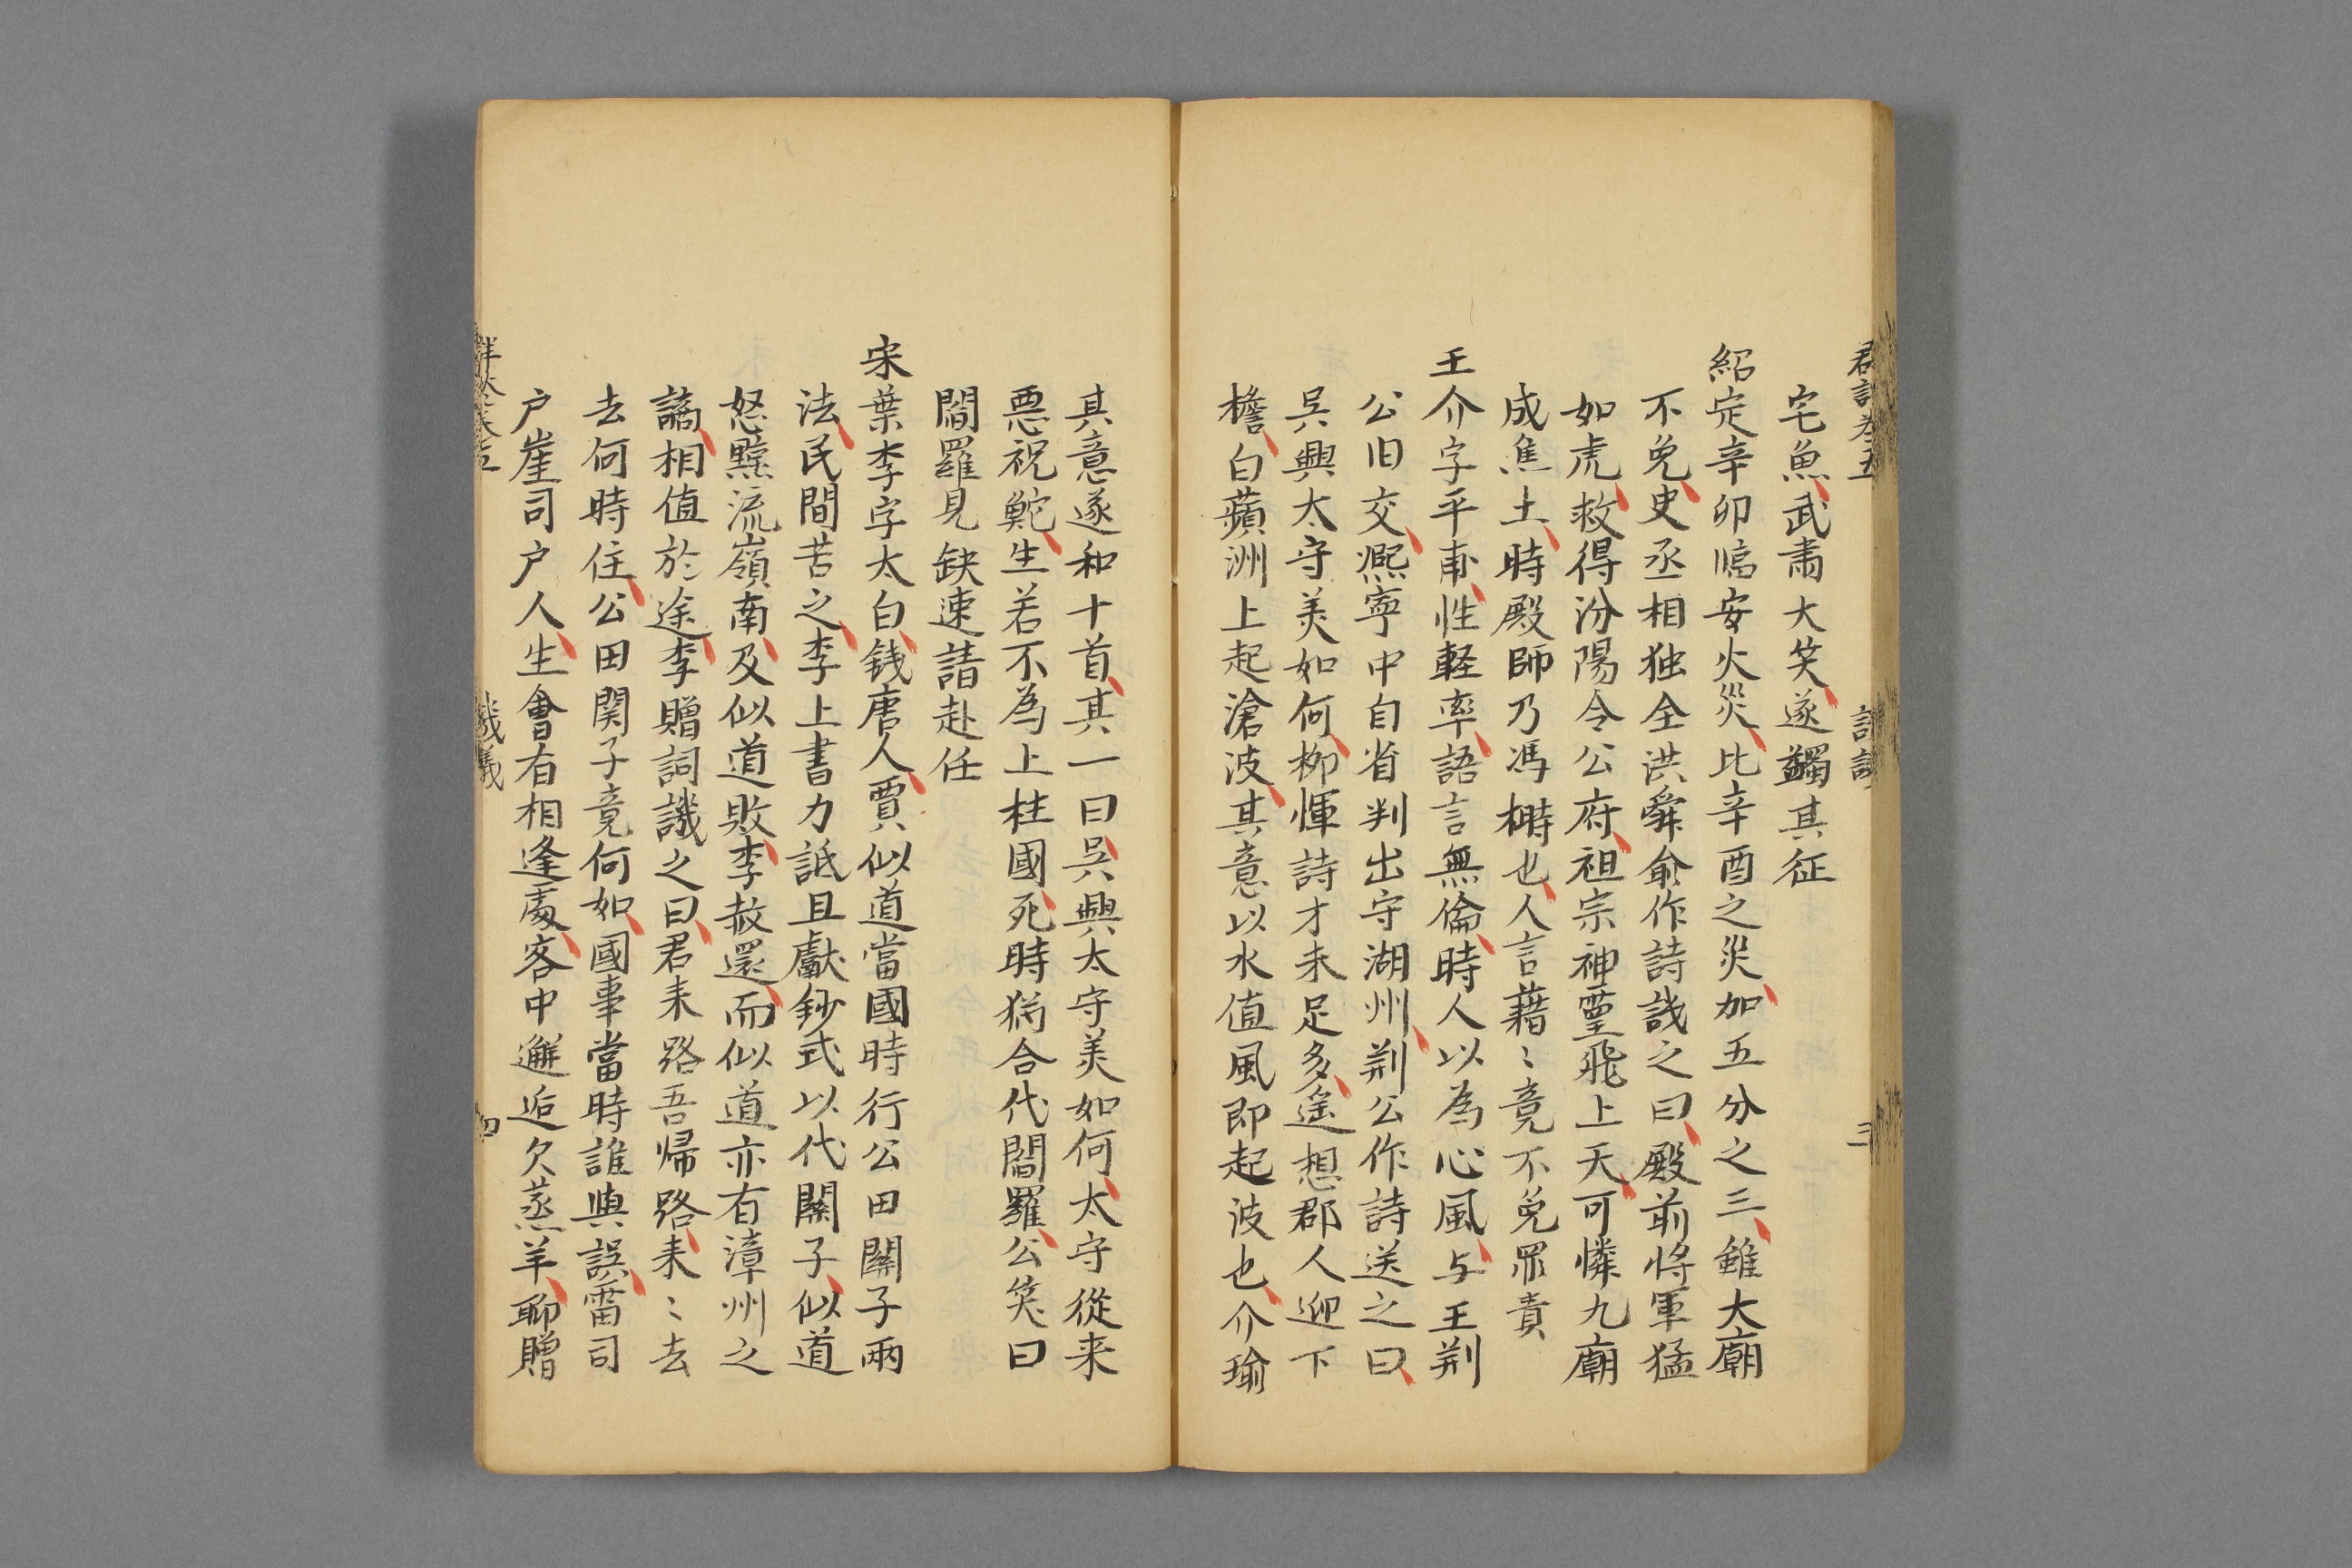 宅魚武肅大笑遂蠲其征
紹定辛卯臨安火災比辛酉之災加五分之三雖大廟
不免史丞相独全洪舜俞作詩譏之曰殿前将軍猛
如虎救得汾陽令公府祖宗神靈飛上天可憐九廟
成焦土時殿師乃馮榯也人言藉〻竟不免罪責
王介字平甫性軽率語言無倫時人以為心風与王荆
公旧交熙寧中自省判出守湖州荆公作詩送之曰
呉興太守美如何柳惲詩才未足多遥想郡人迎下
檐白蘋洲上起滄波其意以水值風即起波也介瑜
其意遂和十首其一曰呉興太守美如何太守從来
惡祝鮀生若不為上柱國死時猶合代閻羅公笑曰
閻羅見缺速請赴任
宋葉李字太白銭唐人賈似道當國時行公田關子兩
法民間苦之李上書力詆且獻鈔式以代關子似道
怒黥流嶺南及似道敗李赦還而似道亦有漳州之
謫相值於途李贈詞譏之曰君来路吾歸路来〻去
去何時住公田関子竟何如國事當時誰與誤雷司
户崖司户人生會有相逢處客中邂逅欠蒸羊聊贈